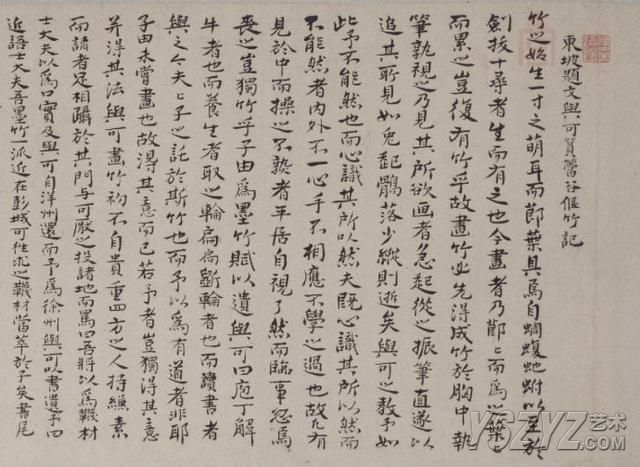 東坡題文與可篔簹谷偃竹記
竹之始生一寸之萌耳而節葉具焉自蜩蝮虵蚹以至於
劍拔十尋者生而有之也今畫者乃節〻而為之葉〻
而累之豈復有竹乎故畫竹必先得成竹於胸中執
筆孰視之乃見其所欲画者急起從之振筆直遂以
追其所見如兔起鶻落少縱則逝矣與可之教予如
此予不能然也而心識其所以然夫既心識其所以然而
不能然者內外不一心手不相應不學之過也故凡有
見於中而操之不熟者平居自視了然而臨事忽焉
喪之豈獨竹乎子由為墨竹賦以遺與可曰庖丁解
牛者也而養生者取之輪扁斲輪者也而讀書者
與之今夫〻子之託於斯竹也而予以為有道者非耶
子由未嘗畫也故得其意而已若予者豈獨得其意
并得其法與可畫竹初不自貴重四方之人持縑素
而請者足相躡於其門与可厭之投諸地而罵曰吾將以為韈材
士大夫以為口實及與可自洋州還而予為徐州與可以書遺予曰
近語士大夫吾墨竹一派近在彭城可往求之韈材當萃於子矣書尾
艺术
.com